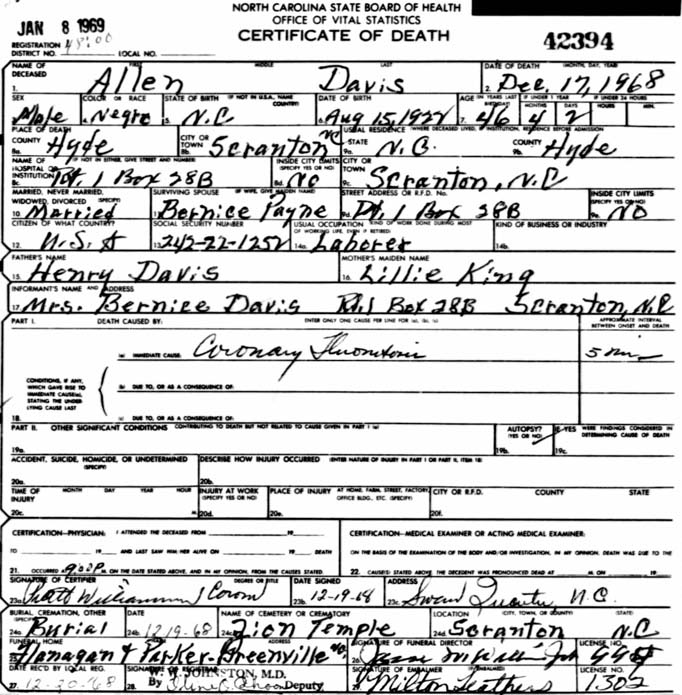 NORTH CAROLINA STATE BOARD OF HEALTH
OFFICE OF VITAL STATISTICS
CERTIFICATE OF DEATH
JAN 8 1969
42394
REGISTRATION DISTRICT NO. LOCAL NO.
NAME OF DECEASED FIRST MIDDLE LAST DATE OF DEATH (MONTH, DAY, YEAR)
1. Allen Davis 2. Dec. 17, 1968
SEX COLOR OR RACE STATE OF BIRTH (IF NOT IN U.S.A., NAME COUNTRY) DATE OF BIRTH AGE (IN YEARS LAST BIRTHDAY) IF UNDER 1 YEAR IF UNDER 24 HOURS
MONTHS DAYS HOURS MIN.
Male 4. Negro 5. N.C 6. Aug 15, 1922 7. 46 4 2
PLACE OF DEATH USUAL RESIDENCE (WHERE DECEASED LIVED, IF INSTITUTION, RESIDENCE BEFORE ADMISSION
COUNTY CITY OR TOWN STATE COUNTY
8a. Hyde 8b. Scranton NC 9a. N.C. 9b. Hyde
NAME OF HOSPITAL OR INSTITUTION (IF NOT IN EITHER, GIVE STREET AND NUMBER) INSIDE CITY LIMITS (SPECIFY YES OR NO) CITY OR TOWN
8c. Rt 1 Box 28B 8d. NO 9c. Scranton, N.C
MARRIED, NEVER MARRIED, WIDOWED, DIVORCED (SPECIFY) SURVIVING SPOUSE (IF WIFE, GIVE MAIDEN NAME) STREET ADDRESS OR R.F.D. No. INSIDE CITY LIMITS (SPECIFY YES OR NO)
10. Married 11. Bernice Payne 9d. Rt 1 Box 28B 9e. NO
CITIZEN OF WHAT COUNTRY? SOCIAL SECURITY NUMBER USUAL OCCUPATION (KIND OF WORK DONE DURING MOST OF WORKING LIFE, EVEN IF RETIRED) KIND OF BUSINESS OR INDUSTRY
12. U.S.A 13. 242-22-1252 14a. Laborer 14b.
FATHER'S NAME MOTHER'S MAIDEN NAME
15. Henry Davis 16. Lillie King
INFORMANT'S NAME AND ADDRESS
17. Mrs. Bernice Davis Rt. 1 Box 28B Scranton, N.C
PART I. DEATH CAUSED BY: ENTER ONLY ONE CAUSE PER LINE FOR (a), (b), (c) APPROXIMATE INTERVAL BETWEEN ONSET AND DEATH
(a) IMMEDIATE CAUSE: Coronary Thrombosis 5 min
CONDITIONS, IF ANY, WHICH GAVE RISE TO IMMEDIATE CAUSE(a), STATING THE UNDERLYING CAUSE LAST
(b) DUE TO, OR AS A CONSEQUENCE OF:
18. (c) DUE TO, OR AS A CONSEQUENCE OF:
PART II. OTHER SIGNIFICANT CONDITIONS CONTRIBUTING TO DEATH BUT NOT RELATED TO CAUSE GIVEN IN PART I (a) AUTOPSY? (YES OR NO) IF YES WERE FINDINGS CONSIDERED IN DETERMINING CAUSE OF DEATH
19a. 19b. 19c.
ACCIDENT, SUICIDE, HOMICIDE, OR UNDETERMINED (SPECIFY) DESCRIBE HOW INJURY OCCURRED (ENTER NATURE OF INJURY IN PART I OR PART II, ITEM 18)
20a. 20b.
TIME OF INJURY MONTH DAY YEAR HOUR INJURY AT WORK (SPECIFY YES OR NO) PLACE OF INJURY (AT HOME, FARM, STREET, FACTORY, OFFICE BLDG., ETC. (SPECIFY) CITY OR R.F.D. COUNTY STATE
20c. M. 20d. 20e. 20f.
CERTIFICATION—PHYSICIAN: I ATTENDED THE DECEASED FROM 19 CERTIFICATION—MEDICAL EXAMINER OR ACTING MEDICAL EXAMINER:
TO 19 AND LAST SAW HIM/HER ALIVE ON 19 DEATH ON THE BASIS OF THE EXAMINATION OF THE BODY AND/OR INVESTIGATION, IN MY OPINION, DEATH WAS DUE TO THE
21. OCCURRED 9:00 P. M. ON THE DATE STATED ABOVE, AND IN MY OPINION, FROM THE CAUSES STATED. 22. CAUSE(S) STATED ABOVE. THE DECEDENT WAS PRONOUNCED DEAD AT M. ON 19
SIGNATURE OF CERTIFIER DEGREE OR TITLE DATE SIGNED ADDRESS
23a. Williamson Coron 23b. 12-19-68 23c. Swan Quarter N.C.
BURIAL, CREMATION, OTHER (SPECIFY) DATE NAME OF CEMETERY OR CREMATORY LOCATION (CITY, TOWN, OR COUNTY) (STATE)
24a. Burial 24b. 12-19-68 24c. Zion Temple 24d. Scranton N.C
FUNERAL HOME ADDRESS SIGNATURE OF FUNERAL DIRECTOR LICENSE NO.
25. Flanagan & Parker Greenville NC 26.
DATE REC'D BY LOCAL REG. W. W. JOHNSTON, M.D. SIGNATURE OF EMBALMER LICENSE NO.
27. 12-20-68 28. By Deputy 29. Milton Leathers 1302